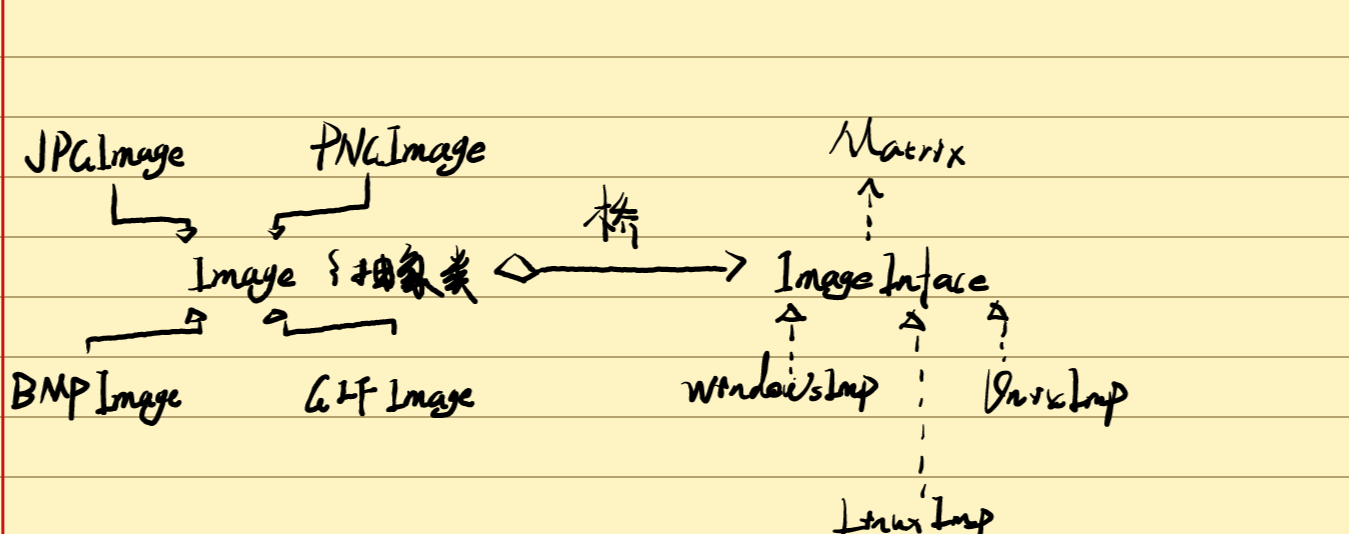 JPGImage PNGImage Matrix
桥
Image {抽象类 ImageIntface
BMPImage GIFImage WindowsImp UnixImp
LinuxImp